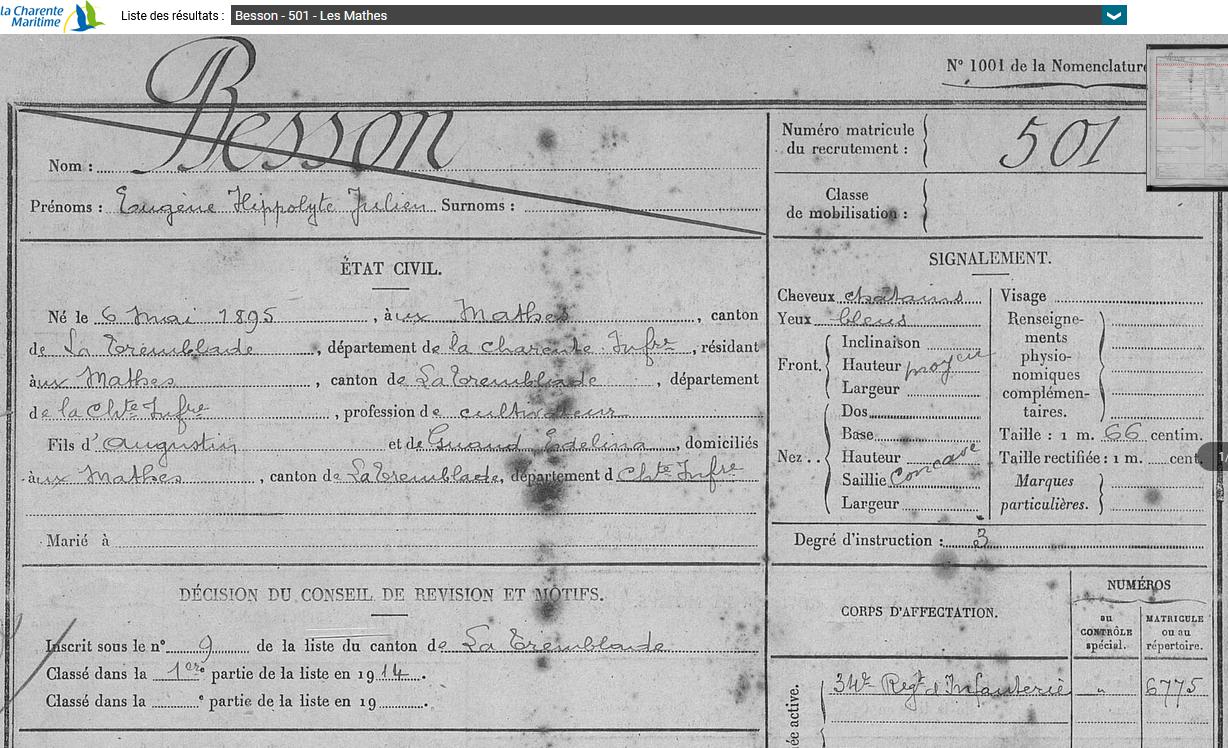 la Charente
Maritime
Liste des résultats : Besson - 501 - Les Mathes
N° 1001 de la Nomenclature
Nom : Besson
Prénoms : Eugène Hippolyte Julien Surnoms :
Numéro matricule
du recrutement : 501
Classe
de mobilisation :
ÉTAT CIVIL.
Né le 6 mai 1895, àux Mathes, canton
de La Tremblade, département de la charente Infre, résidant
àux Mathes, canton de La Tremblade, département
de la Chte Infre, profession de cultivateur
Fils d'Augustin et de Guand Edelina, domiciliés
àux Mathes, canton de La Tremblade, département d Chte Infre
Marié à
SIGNALEMENT.
Cheveux chatains
Yeux bleus
Front. Inclinaison
Hauteur moyen
Largeur
Nez .. Dos
Base
Hauteur
Saillie Concave
Largeur
Visage
Renseigne-
ments
physio-
nomiques
complémen-
taires.
Taille : 1 m. 66 centim.
Taille rectifiée : 1 m. cent.
Marques
particulières.
Degré d'instruction : 3
DÉCISION DU CONSEIL DE REVISION ET MOTIFS.
Inscrit sous le n° 9 de la liste du canton de La Tremblade
Classé dans la 1ere partie de la liste en 1914.
Classé dans la e partie de la liste en 19 .
CORPS D'AFFECTATION.
NUMÉROS
au
CONTRÔLE
spécial.
MATRICULE
ou au
répertoire.
34e Regt d'Infanterie " 6775
ée active.
1/